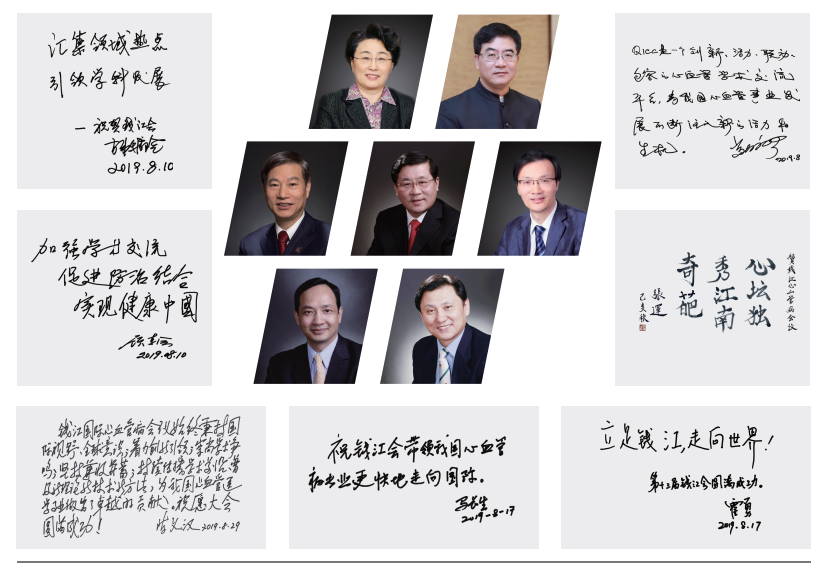 汇集领域热点
引领学科发展
—祝贺钱江会
2019.8.10
加强学术交流
促进防治结合
实现健康中國
2019.08.10
QICC是一个创新、活力、联动、
包容的心血管学术交流
平台,为我国心血管事业发
展不断注入新的活力和
生机。
2019.8
贺钱江心血管病会议
心坛独
秀江南
奇葩
张运
己亥秋
钱江国际心血管病会议始终秉持国
际视野、全球意识;着力创新引领;崇尚学术争
鸣;坚持兼收并蓄;
为我国心血管建
卓越的贡献。祝愿大会
圆满成功!
2019.8.29
祝钱江会带领我国心血管
和专业更快地走向国际。
马长生
2019-8-17
立足钱江,走向世界!
第十三届钱江会圆满成功。
霍勇
2019.8.17